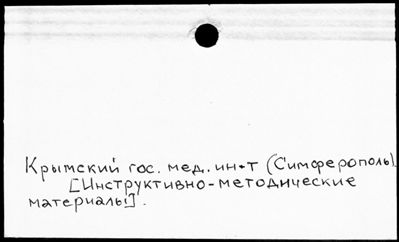 Крымский гос. мед. ин-т (Симферополь).
[Инструктивно-методические
материалы].